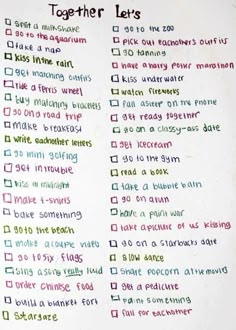 Together Let's
split a milkshake
go to the aquarium
take a nap
kiss in the rain
get matching outfits
ride a ferris wheel
buy matching braclets
go on a road trip
make breakfast
write eachother letters
go mini golfing
get in trouble
kiss at midnight
make t-shirts
bake something
go to the beach
make a couple video
go to six flags
sing a song really loud
order chinese food
build a blanket fort
stargaze
go to the zoo
pick out eachothers outfits
go tanning
have a harry potter marathon
kiss underwater
watch fireworks
fall asleep on the phone
get ready together
go on a classy-ass date
get icecream
go to the gym
read a book
take a bubble bath
go on a run
have a paint war
take a picture of us kissing
go on a starbucks date
slow dance
share popcorn at the movies
get a pedicure
paint something
fall for eachother